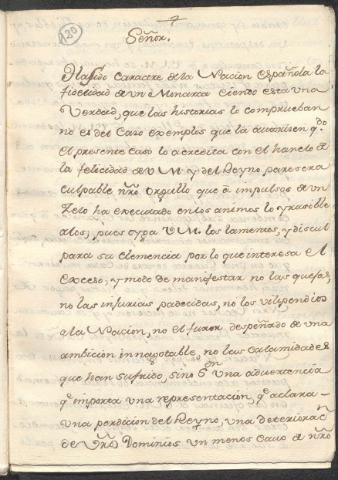 120
Señor.
Ha sido caracter de la Nacion española la
fidelidad de un Monarca siendo esta una
verdad, que las historias lo comprueban
no es del caso exemplos que la autorisen qdo
el presente caso lo acredita con el hanelo de
la felicidad de V M y del Reyno, paresera
culpable nro orgullo que a impulsos de un
Zelo ha executado en los animos lo yrasible
pues oyga V M. los lamentos, y discul
para su clemencia por lo que interesa el
exceso, y modo de manifestar no las quejas,
no las injurias padecidas, no los vilipendios
a la Nacion, no el furor despeñado de una
ambicion innagotable, no las calamidades
que han sufrido, sino en una advertencia
qe imparta una representacion, qe aclara
una perdicion del Reyno, una deteriorasn
de Vros Dominios un menos cavo de nro